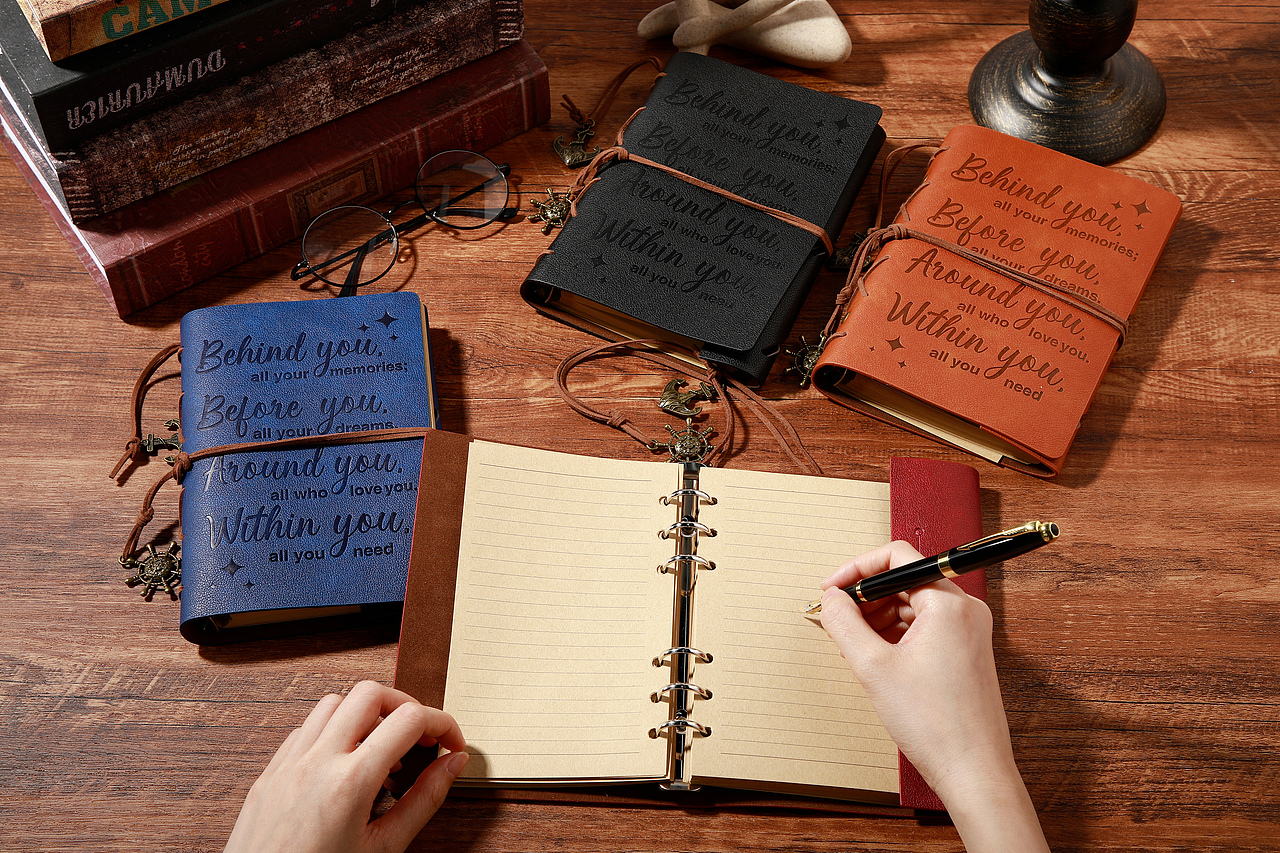 CAM
DUMAURIER
Behind you,
all your memories;
Before you,
all your dreams.
Around you,
all who love you.
Within you,
all you need
Behind you,
all your memories;
Before you,
all your dreams.
Around you,
all who love you.
Within you,
all you need
Behind you,
all your memories;
Before you,
Around you,
all who love you.
Within you,
all you need